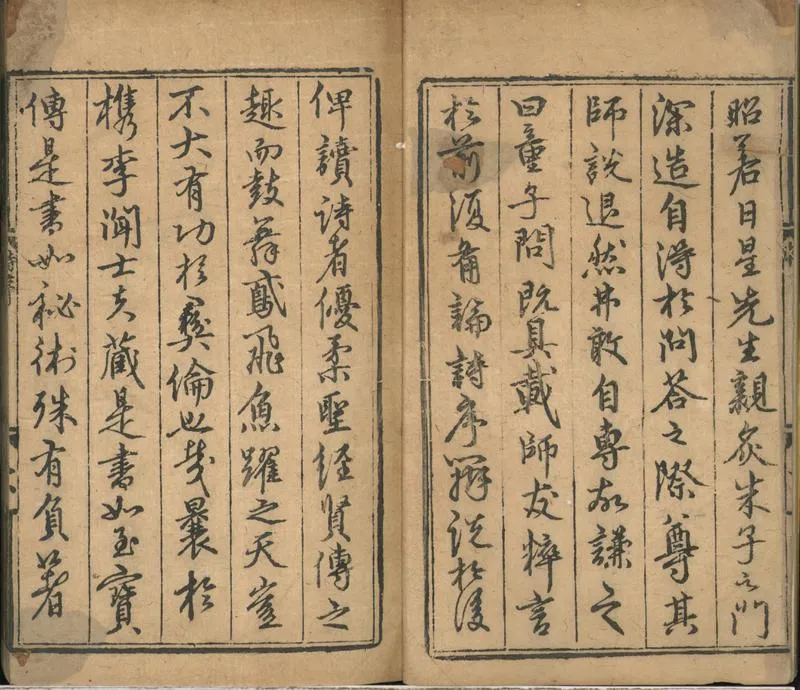 昭若日星先生親炙朱子之門
深造自淂於問荅之際尊其
師說退然弗敢自專故謙之
曰童子問既具載師友粹言
於前復備論詩序辯說於後
俾讀诗者優柔聖经賢傳之
趣而鼓舞鳶飛魚躍之天豈
不大有功於彛倫也㢤曩於
檇李聞士夫藏是書如至寶
傳是書如祕術殊有負著